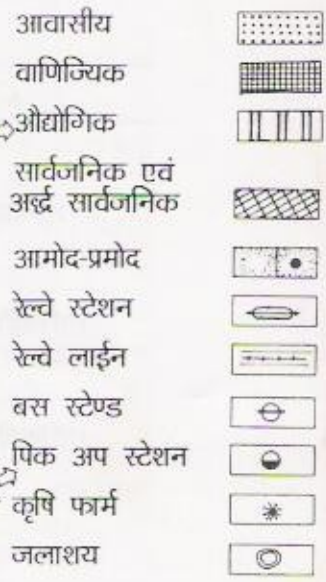 आवासीय
वाणिज्यिक
औद्योगिक
सार्वजनिक एवं
अर्द्ध सार्वजनिक
आमोद-प्रमोद
रेल्वे स्टेशन
रेल्वे लाईन
बस स्टेण्ड
पिक अप स्टेशन
कृषि फार्म
जलाशय